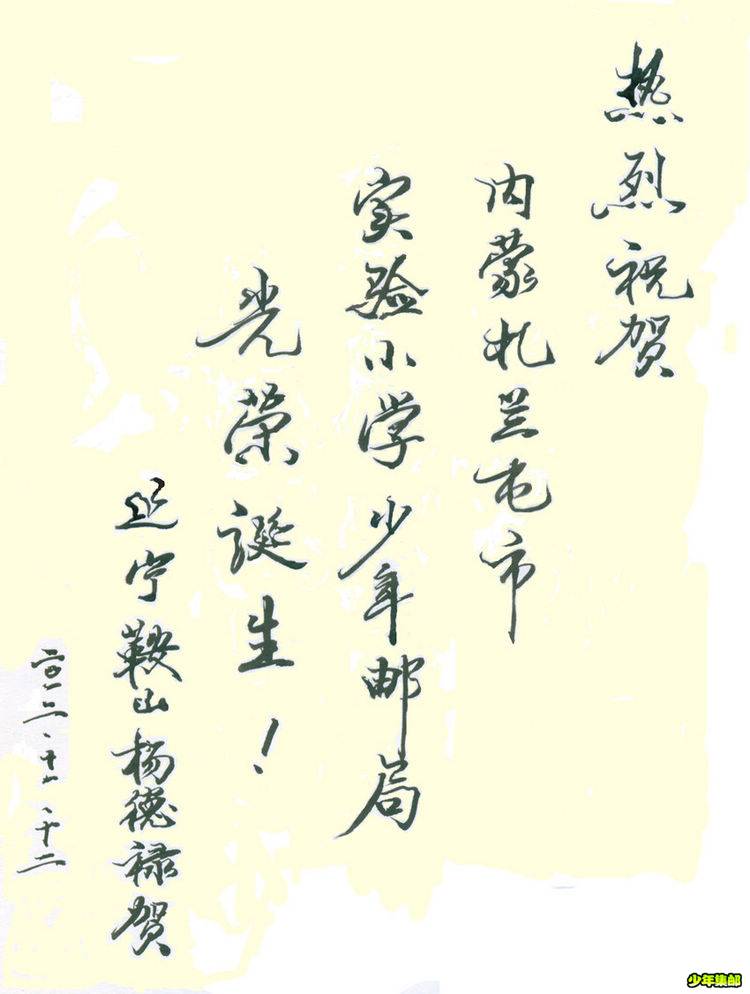 热烈祝贺
内蒙扎兰屯市
实验小学少年邮局
光荣诞生！
辽宁鞍山杨德禄贺
二〇一二、十一、十二
少年集邮